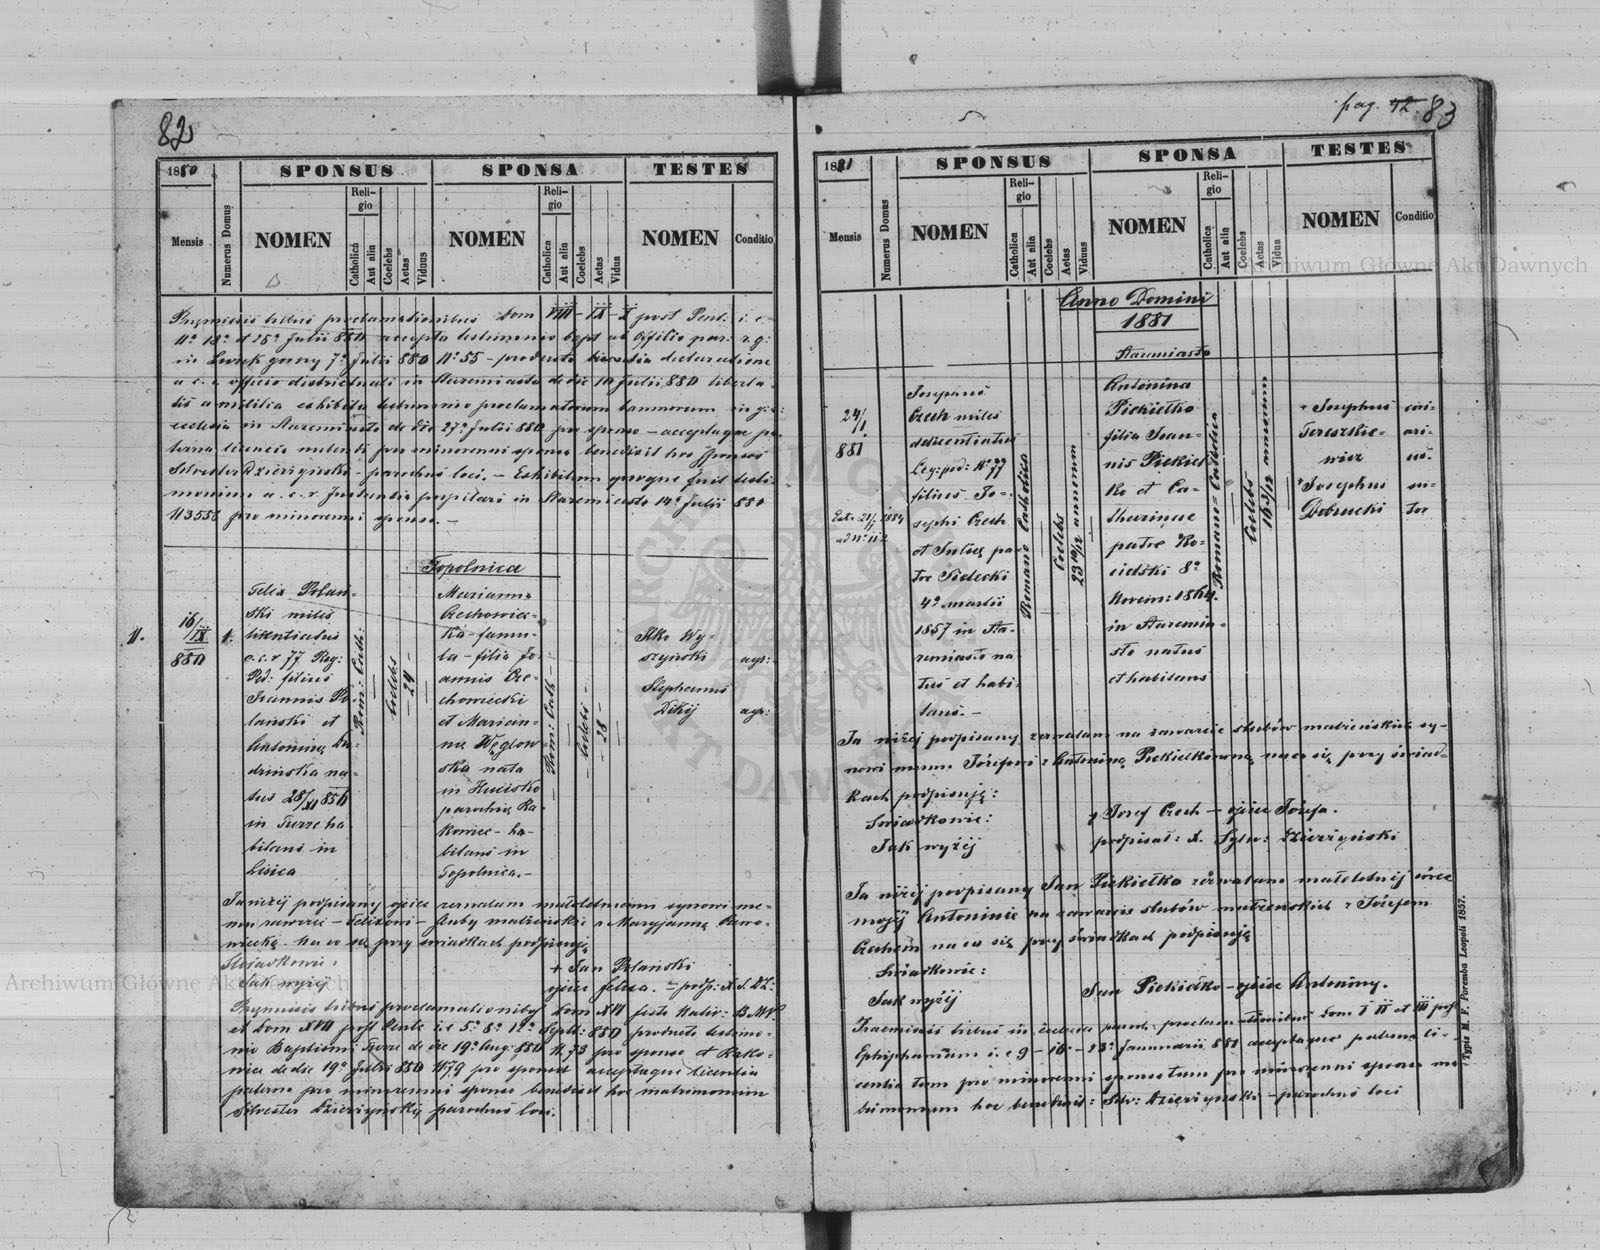 82
1880
SPONSUS
SPONSA
TESTES
Mensis
Numerus Domus
NOMEN
Religio
Catholica
Aut alia
Coelebs
Aetas
Viduus
NOMEN
Religio
Catholica
Aut alia
Coelebs
Aetas
Vidua
NOMEN
Conditio
Praemissis tribus proclamationibus Dom VIII - IX - X post Pent. i. e.
11ª 18ª et 25ª Julii 880 accepto testimonio bapt ab Offilio par: r.g:
in 7ª Julii 880 Nº 55 - producta declaratione
a c. r. officio districtuali in Staremiasto de die 10 Julii 880 liberta-
tis a militia exhibito testimonio proclamatorum bannorum in
ecclesia in Staremiasto de die 27ª Julii 880 pro sponso - acceptaque pa-
terna licencia pro minorenni sponsa benedixit hos sponsos
Silvester Dzierżyński - parochus loci. - Exhibitum quoque fuit testi-
monium a. c. r. Judicii pupilari in Staremiasto 14ª Julii 880
Nº 3556 pro minorenni sponsa. -
Topolnica
11.
16/IX
880
1.
Felix Polań-
ski miles
licentiatus
c.c.r 77 Reg:
Ped: filius
Joannis Po-
lański et
Antonina
-dzińska na-
tus 28/XI 856
in Turze ha-
bitans in
Lisica
Rom: Cath:
Coelebs
- 24 -
Marianna
Czechowic-
ka - famu-
la - filia Jo-
annis Cze-
chowiecki
et Marian-
na Węglow-
ska nata
in Hucisko
parochia Ra-
kowiec - ha-
bitans in
Topolnica. -
Rom: Cath -
- Coelebs -
- 28 -
Ilko Wy-
szyński
agr:
Stephanus
Dikij
agr:
Ja niżej podpisany ojciec zezwalam małoletniemu synowi me-
mu zawrzeć - Felixowi - śluby małżeńskie z Maryjanną Czecho-
wiecką. Na co się przy świadkach podpisuję
Świadkowie:
Jak wyżej
+ Jan Polański
ojciec Felixa. - podp: X. S. Dz:
Praemissis tribus proclamationibus Dom XVI festo Nativ: B.M.V.
et Dom XVII post Pente i.e 5ª 8ª 12ª Septb: 880 producto testimo-
nio Baptismi Turze de die 19ª Aug: 880 N. 73 pro sponso et Rako-
wiec de die 19ª Julii 880 Nº 79 pro sponsa acceptaque licentia
paterna pro minorenni sponso benedixit hoc matrimonium
Silvester Dzierżyński parochus loci.
pag. 42. 83
1881
SPONSUS
SPONSA
TESTES
Mensis
Numerus Domus
NOMEN
Religio
Catholica
Aut alia
Coelebs
Aetas
Viduus
NOMEN
Religio
Catholica
Aut alia
Coelebs
Aetas
Vidua
NOMEN
Conditio
Anno Domini
1881
Staremiasto
24/I
881
Josephus
Czech miles
Leg: ped: Nº 77
filius Jo-
sephi Czech
et Juliæ pa-
tre Sidecki
4ª martii
1857 in Sta-
remiasto na-
tus et habi-
tans. -
Romano Catholica
Coelebs
23 10/12 annorum
Antonina
Piekiełko
filia Joan-
nis Piekieł-
ko et Ca-
tharinae
patre Ko-
cielski 8ª
Novem: 1864.
in Staremia-
sto natus
et habitans
Romano - Catholica
Coelebs
16 3/12 annorum
+ Josephus
Tereszkie-
wicz
+ Josephus
Dobrucki
su-
tor
Ja niżej podpisany zezwalam na zawarcie ślubów małżeńskich sy-
nowi memu Józefowi z Antoniną Piekiełkówną, na co się przy świad-
kach podpisuję:
Świadkowie:
Jak wyżej
+ Józef Czech - ojciec Józefa.
podpisał: X. Sylw: Dzierżyński
Ja niżej podpisany Jan Piekiełko zezwalam małoletniej córce
mojej Antoninie na zawarcie ślubów małżeńskich z Józefem
Czechem na co się przy świadkach podpisuję
Świadkowie:
Jak wyżej
Jan Piekiełko - ojciec Antoniny.
Praemissis tribus in ecclesia paroch: proclamationibus Dom I II et III post
Epiphaniam i. e 9 - 16 - 23ª Januarii 881 acceptaque paterna li-
centia tam pro minorenni sponso tum pro minorenni sponsa ma-
trimonium hoc benedixit: Silv: Dzierżyński - parochus loci
Typis M. F. Poremba Leopoli 1857.
Archiwum Główne Akt Dawnych
Archiwum Główne Akt Dawnych